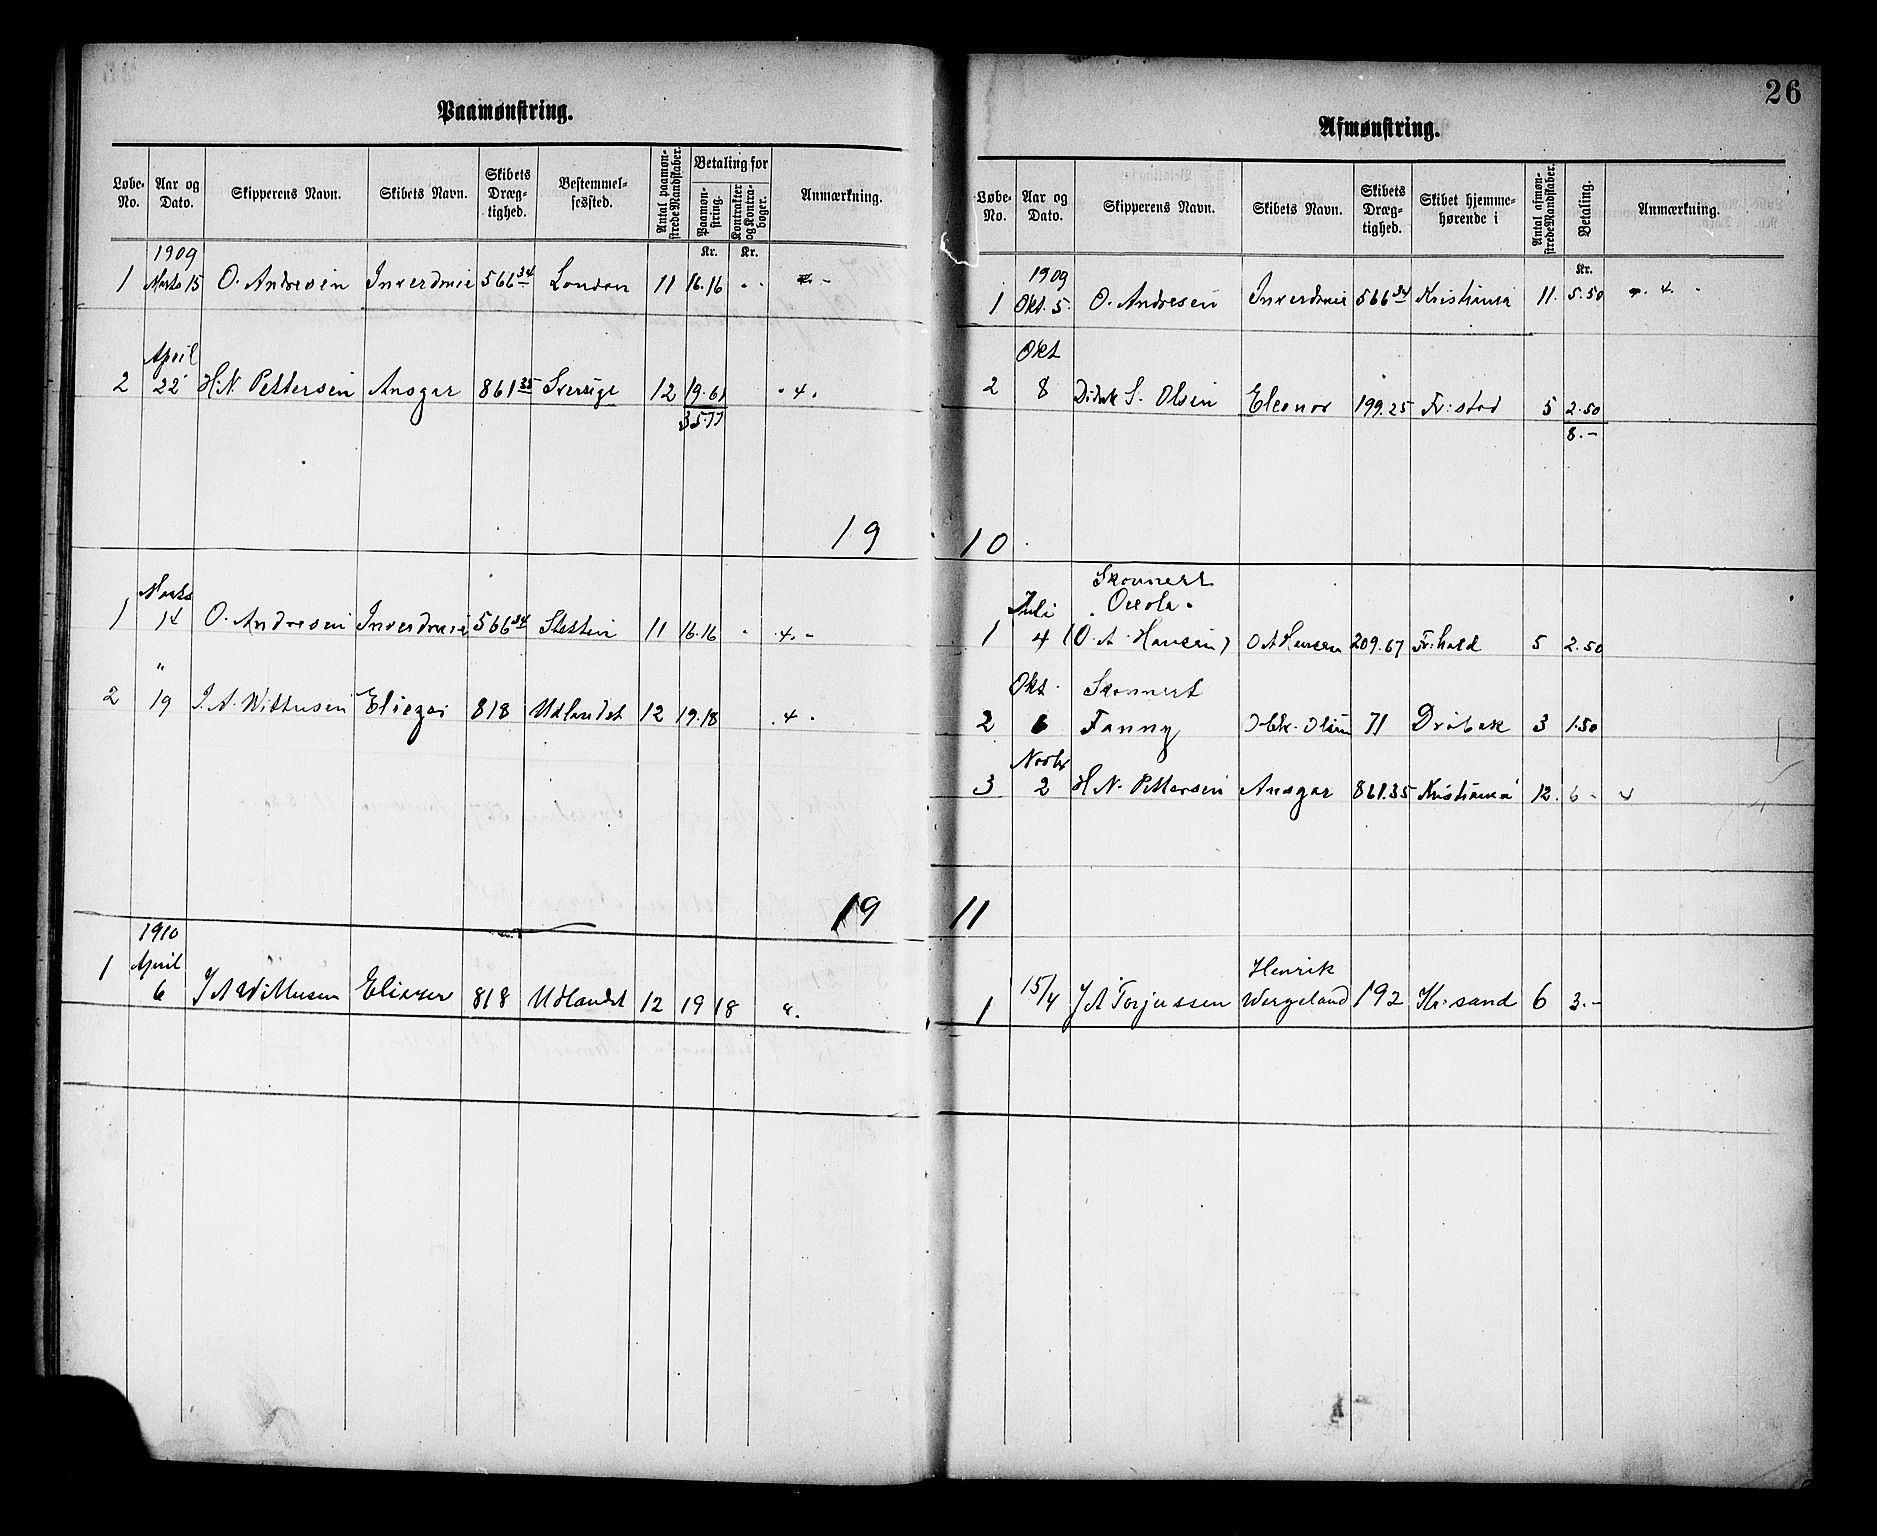 26
Paamønstring.
Løbe-No. | Aar og Dato. | Skipperens Navn. | Skibets Navn. | Skibets Dræg-tighed. | Bestemmel-sessted. | Antal paamøn-strede Mandskaber. | Betaling for Paamøn-string. | Kontrakter og Kontra-bøger. | Anmærkning.
Kr. Kr.
1909
1 Marts 15 O. Andresen Inverdruie 566 34 London 11 16.16 - -
April
2 22 H.N. Pettersen Ansgar 861 35 Sverige 12 19.61 - 4.
35.77
19
Marts
1 14 O. Andresen Inverdruie 566 34 Stettin 11 16.16 - . 4. -
"
2 19 J. A. Wittusen Eliezer 818 Udlandet 12 19.18 . 4 -
19
1910
1 April
6 J A Wittusen Eliezer 818 Udlandet 12 19 18 ".
Afmønstring.
Løbe-No. | Aar og Dato. | Skipperens Navn. | Skibets Navn. | Skibets Dræg-tighed. | Skibet hjemme-hørende i | Antal afmøn-strede Mandskaber. | Betaling. | Anmærkning.
Kr.
1909
1 Okt. 5. O. Andresen Inverdruie 566 34 Kristiania 11. 5.50 . 4. -
Okt
2 8 Didrik S. Olsen Eleonor 199.25 Fr:stad 5 2.50
8.-
10
Skonnert
Juli
1 4 (O. A. Hansen) O A Hansen 209.67 Fr:hald 5 2.50
Okt. Skonnert
2 6 Fanny Olsen 71 Drøbak 3 1.50
Novbr
3 2 H. N. Pettersen Ansgar 861.35 Kristiania 12. 6 - 4
11
Henrik
1 15/4 J A Torjussen Wergeland 192 Kr:sand 6 3.-